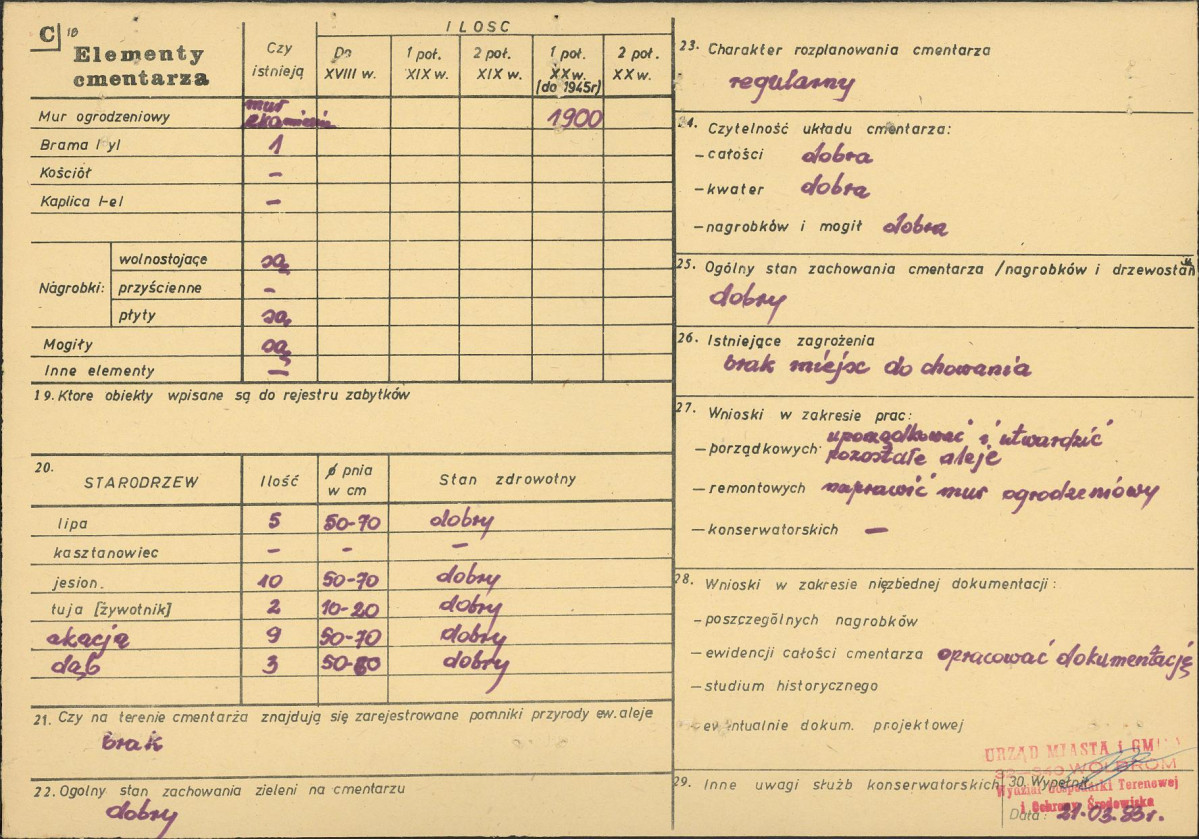 C 18
Elementy
cmentarza
Czy
istnieją
ILOSC
Do
XVIII w.
1 poł.
XIX w.
2 poł.
XIX w.
1 poł.
XX w.
(do 1945r)
2 poł.
XX w.
Mur ogrodzeniowy mur 1900
Brama I-yl 1
Kościół –
Kaplica I-el –
Nagrobki:
wolnostojące są
przyścienne –
płyty są
Mogiły są
Inne elementy –
19. Ktore obiekty wpisane są do rejestru zabytków
20.
STARODRZEW Ilość ø pnia
w cm Stan zdrowotny
lipa 5 50-70 dobry
kasztanowiec – – –
jesion. 10 50-70 dobry
tuja [żywotnik] 2 10-20 dobry
akacja 9 50-70 dobry
dąb 3 50-80 dobry
21. Czy na terenie cmentarża znajdują się zarejestrowane pomniki przyrody ew. aleje
brak
22. Ogolny stan zachowania zieleni na cmentarzu
dobry
23. Charakter rozplanowania cmentarza
regularny
24. Czytelność układu cmentarza:
– całości dobra
– kwater dobra
– nagrobków i mogił dobra
25. Ogólny stan zachowania cmentarza /nagrobków i drzewostanu
dobry
26. Istniejące zagrożenia
brak miejsc do chowania
27. Wnioski w zakresie prac:
– porządkowych uporządkować i utwardzić
pozostałe aleje
– remontowych naprawić mur ogrodzeniowy
– konserwatorskich –
28. Wnioski w zakresie niezbędnej dokumentacji:
– poszczególnych nagrobków
– ewidencji całości cmentarza opracować dokumentację
– studium historycznego
– ewentualnie dokum. projektowej
29. Inne uwagi służb konserwatorskich
30. Wypełnił
URZĄD MIASTA i GMINY
32-340 WOLBROM
Wydział Gospodarki Terenowej
i Ochrony Środowiska
Data: 21.03.83r.